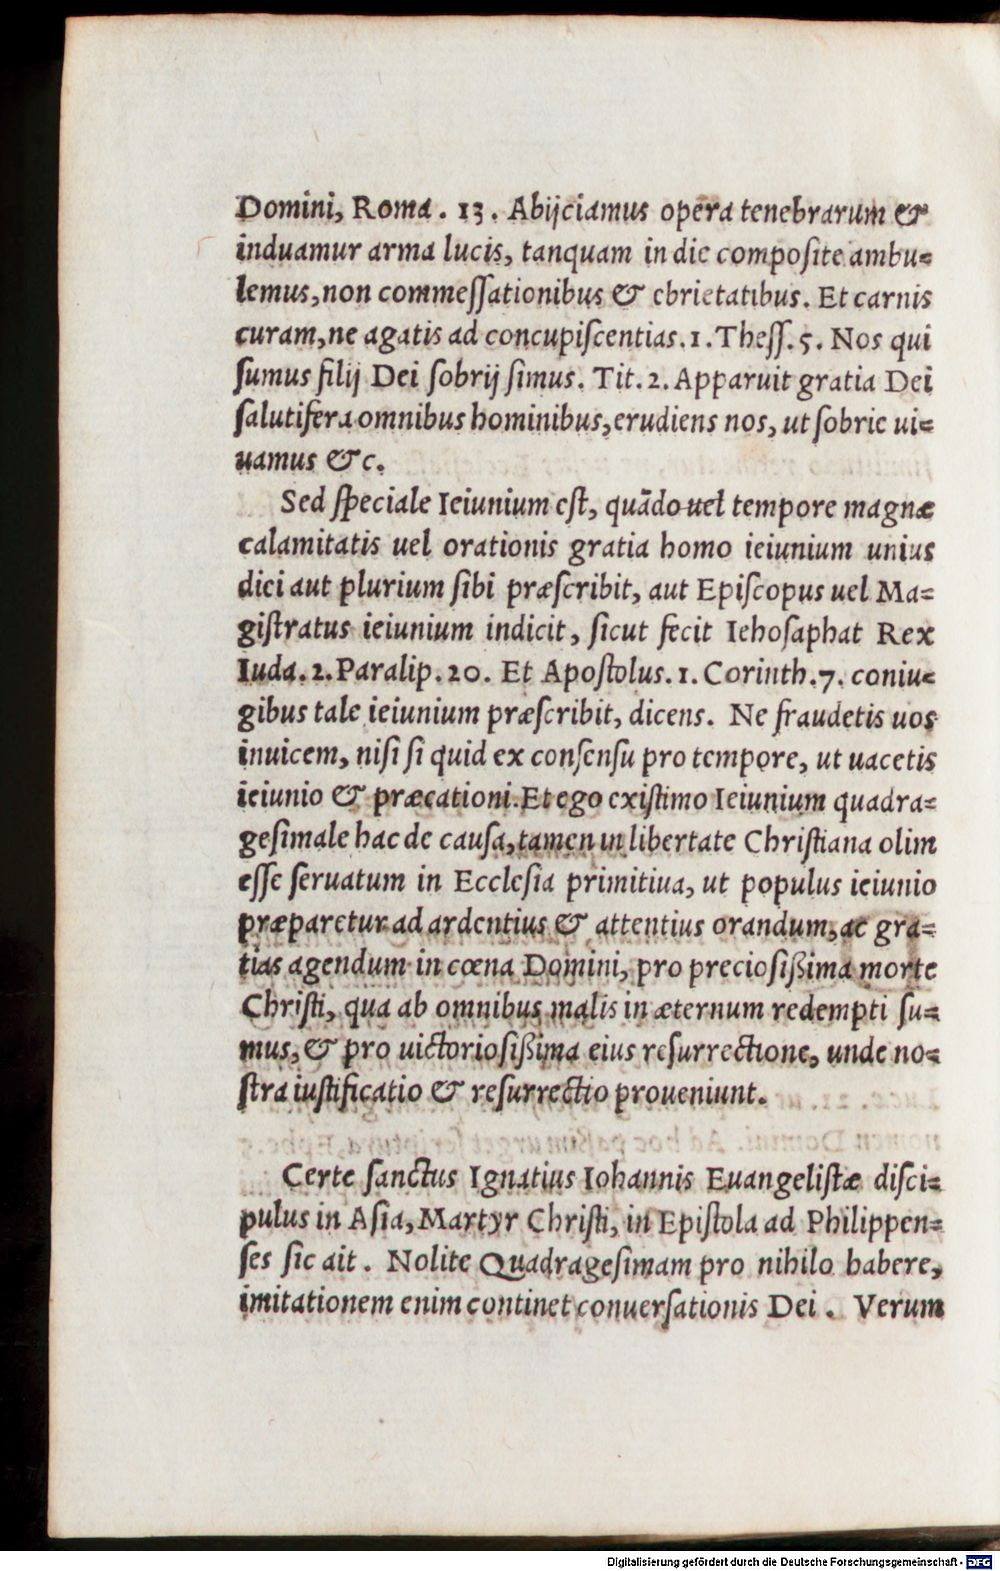 Domini, Roma. 13. Abijciamus opera tenebrarum &
induamur arma lucis, tanquam in die composite ambu=
lemus, non commeſſationibus & ebrietatibus. Et carnis
curam, ne agatis ad concupiſcentias. 1. Theſſ. 5. Nos qui
ſumus filij Dei ſobrij ſimus. Tit. 2. Apparuit gratia Dei
ſalutifera omnibus hominibus, erudiens nos, ut ſobrie ui=
uamus &c.
Sed ſpeciale Ieiunium eſt, quãdo uel tempore magnæ
calamitatis uel orationis gratia homo ieiunium unius
diei aut plurium ſibi præſcribit, aut Epiſcopus uel Ma=
giſtratus ieiunium indicit, ſicut fecit Iehoſaphat Rex
Iuda. 2. Paralip. 20. Et Apoſtolus. 1. Corinth. 7. coniu=
gibus tale ieiunium præſcribit, dicens. Ne fraudetis uos
inuicem, niſi ſi quid ex conſenſu pro tempore, ut uacetis
ieiunio & præcationi. Et ego exiſtimo Ieiunium quadra=
geſimale hac de cauſa, tamen in libertate Chriſtiana olim
eſſe ſeruatum in Eccleſia primitiua, ut populus ieiunio
præparetur ad ardentius & attentius orandum, ac gra=
tias agendum in cœna Domini, pro precioſißima morte
Chriſti, qua ab omnibus malis in æternum redempti ſu=
mus, & pro uictorioſißima eius reſurrectione, unde no=
ſtra iuſtificatio & reſurrectio proueniunt.
Certe ſanctus Ignatius Iohannis Euangeliſtæ diſci=
pulus in Aſia, Martyr Chriſti, in Epiſtola ad Philippen=
ſes ſic ait. Nolite Quadrageſimam pro nihilo habere,
imitationem enim continet conuerſationis Dei. Verum
Digitalisierung gefördert durch die Deutsche Forschungsgemeinschaft - DFG